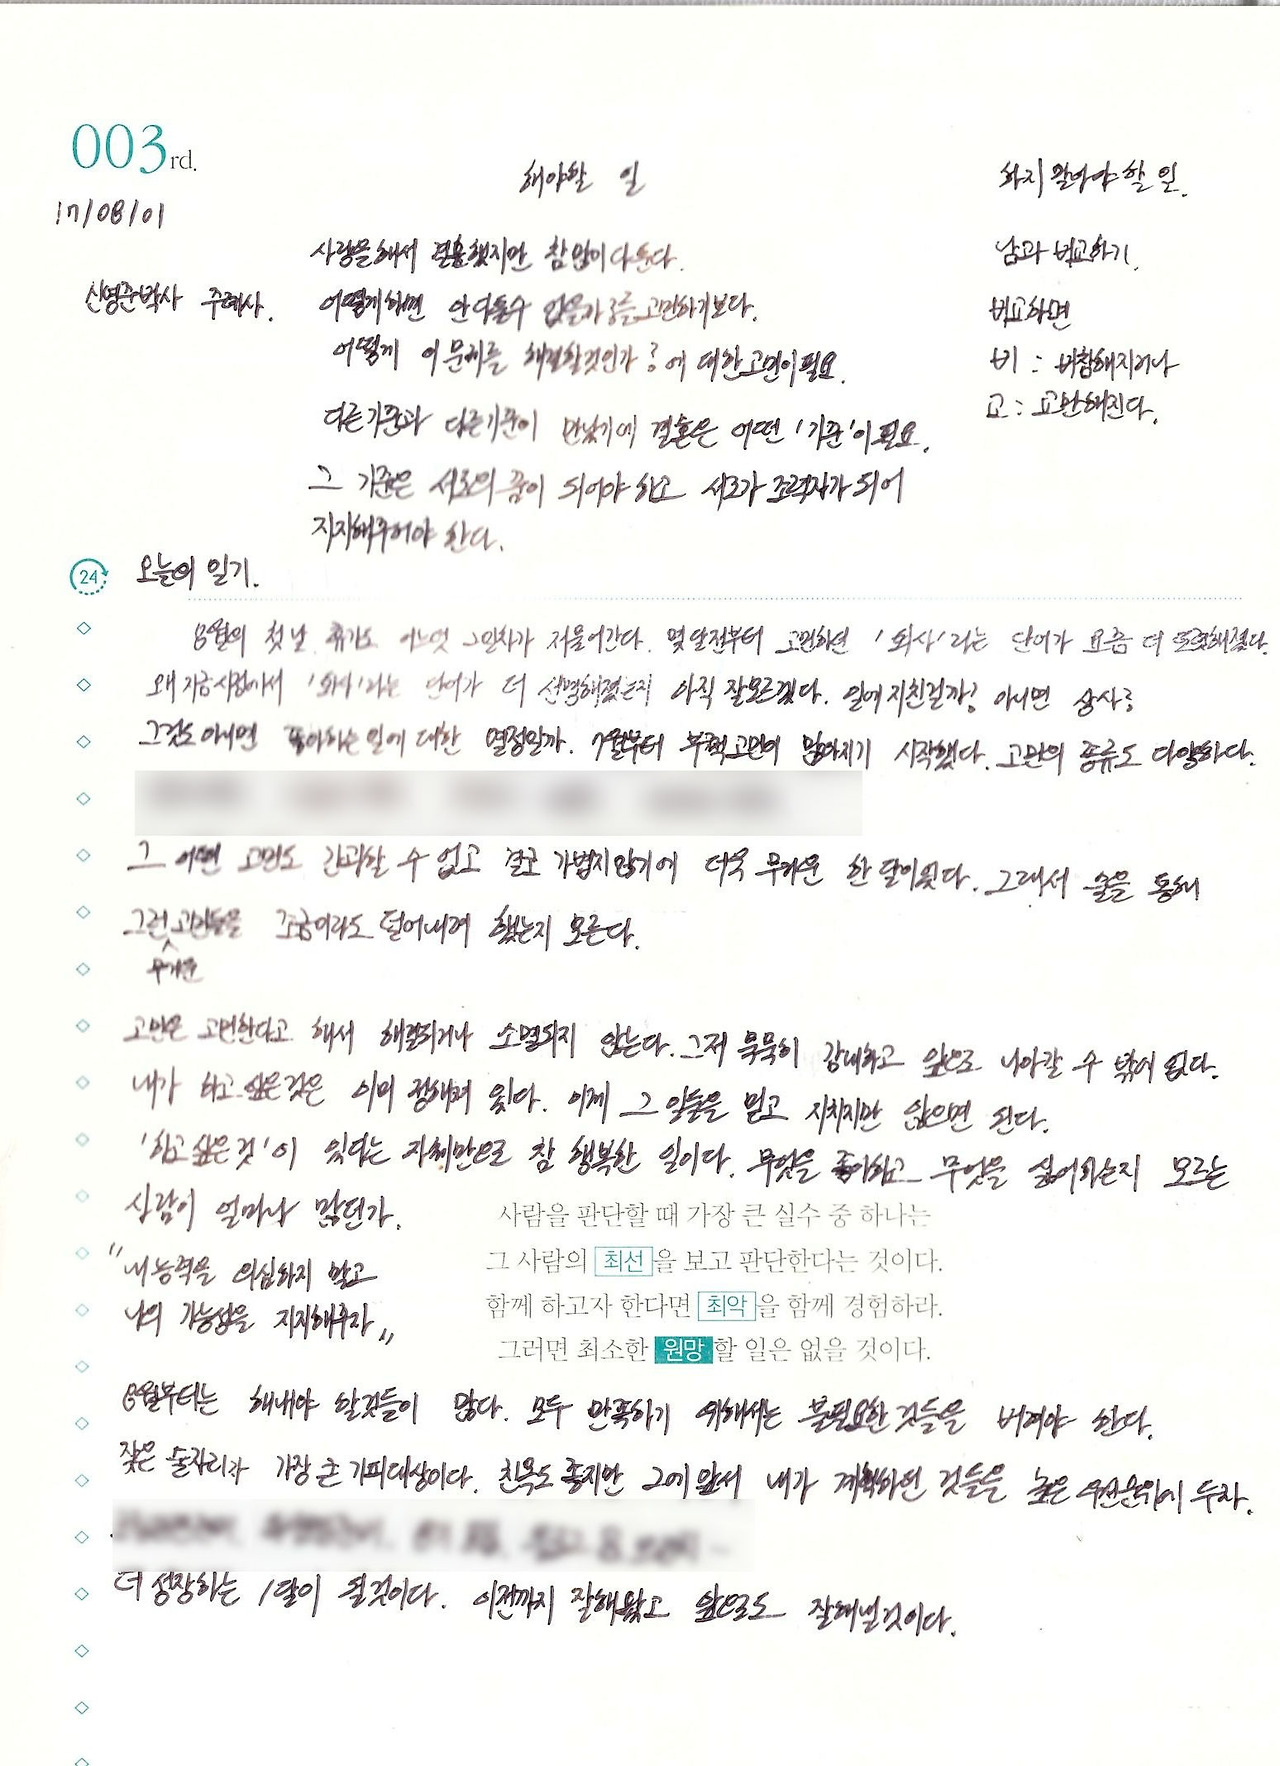 003rd.
17/08/01
해야할 일
하지 말아야 할 일.
신영준박사 주례사.
사랑을해서 결혼했지만 참 많이 다르다.
어떻게하면 안 다툴수 있을까?를 고민하기보다.
어떻게 이 문제를 해결할것인가?에 대한고민이필요.
다른기준과 다른기준이 만났기에 결혼은 어떤 '기준'이 필요.
그 기준은 서로의 꿈이 되어야 하고 서로가 조력자가 되어
지지해주어야 한다.
남과 비교하기.
비교하면
비 : 비참해지거나
교 : 교만해진다.
24 오늘의 일기.
8월의 첫날. 휴가도 어느덧 2일차가 저물어간다. 몇 달전부터 고민하던 '퇴사'라는 단어가 요즘 더 또렷해졌다.
왜 지금시점에서 '퇴사'라는 단어가 더 선명해졌는지 아직 잘모르겠다. 일에 지친걸까? 아니면 상사?
그것도 아니면 좋아하는 일에 대한 열정일까. 7월부터 부쩍 고민이 많아지기 시작했다. 고민의 종류도 다양하다.
그 어떤 고민도 간과할 수 없고 결코 가볍지않기에 더욱 무거운 한달이었다. 그래서 술을 통해
그런 무거운 고민들을 조금이라도 덜어내려 했는지 모른다.
고민은 고민한다고 해서 해결되거나 소멸되지 않는다. 그저 묵묵히 감내하고 앞으로 나아갈 수 밖에 없다.
내가 하고싶은것은 이미 정해져 있다. 이제 그 일들을 믿고 지치지만 않으면 된다.
'하고싶은것'이 있다는 자체만으로 참 행복한 일이다. 무엇을 좋아하고 무엇을 싫어하는지 모르는
사람이 얼마나 많던가.
"내 능력을 의심하지 말고
나의 가능성을 지지해주자"
사람을 판단할 때 가장 큰 실수 중 하나는
그 사람의 최선을 보고 판단한다는 것이다.
함께 하고자 한다면 최악을 함께 경험하라.
그러면 최소한 원망할 일은 없을 것이다.
8월부터는 해내야 할것들이 많다. 모두 만족하기 위해서는 불필요한 것들을 버려야 한다.
잦은 술자리가 가장 큰 기피대상이다. 친목도 좋지만 그에 앞서 내가 계획하던 것들을 높은 우선순위에 두자.
더 성장하는 1달이 될것이다. 이전까지 잘해왔고 앞으로도 잘해낼것이다.